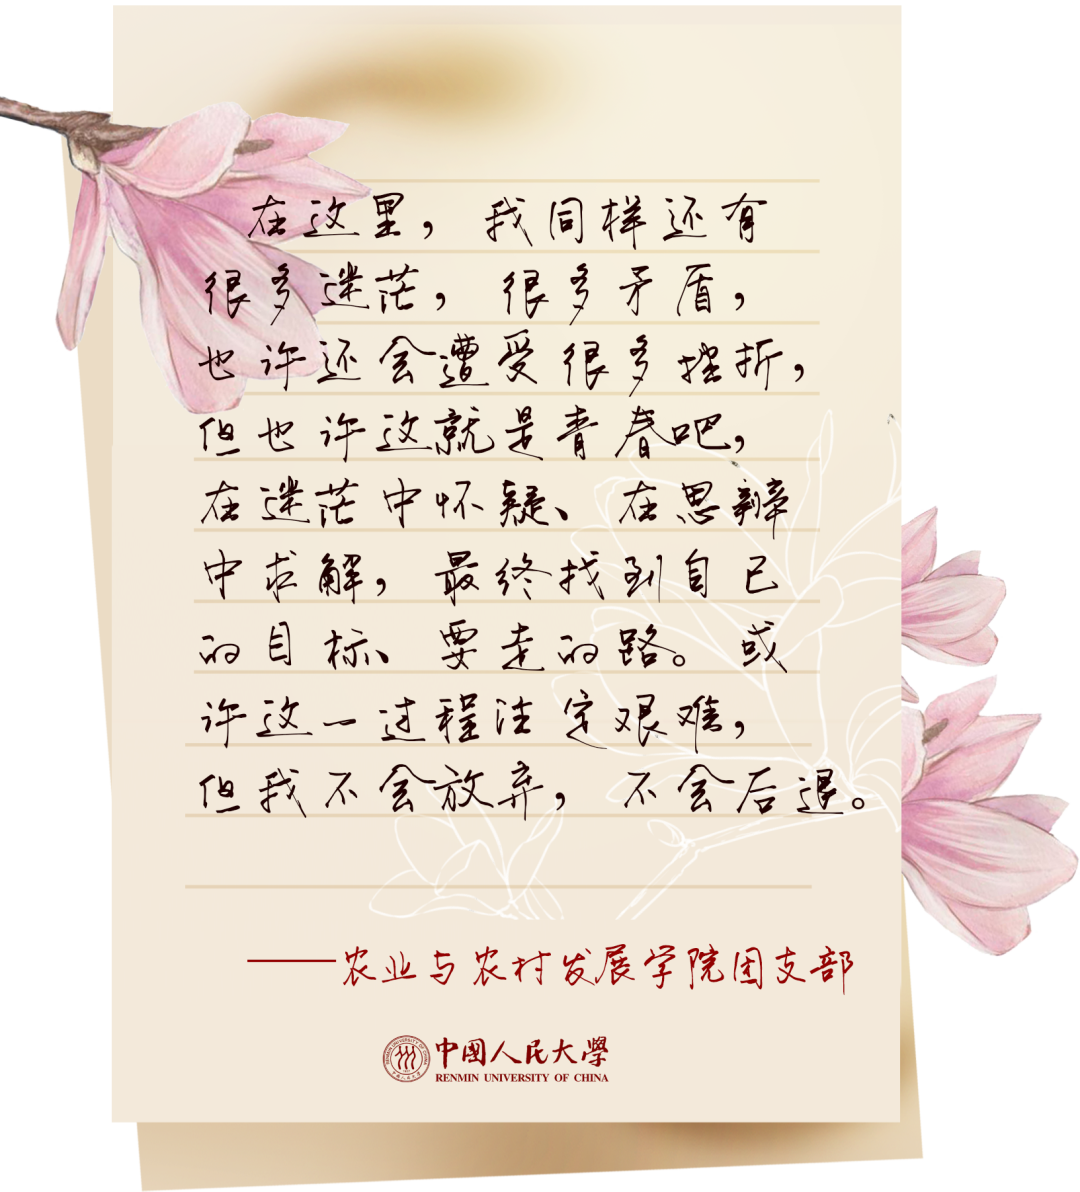 在这里，我同样还有
很多迷茫，很多矛盾，
也许还会遭受很多挫折，
但也许这就是青春吧，
在迷茫中怀疑、在思辨
中求解，最终找到自己
的目标、要走的路。或
许这一过程注定艰难，
但我不会放弃，不会后退。
——农业与农村发展学院团支部
中國人民大學
RENMIN UNIVERSITY OF CHINA